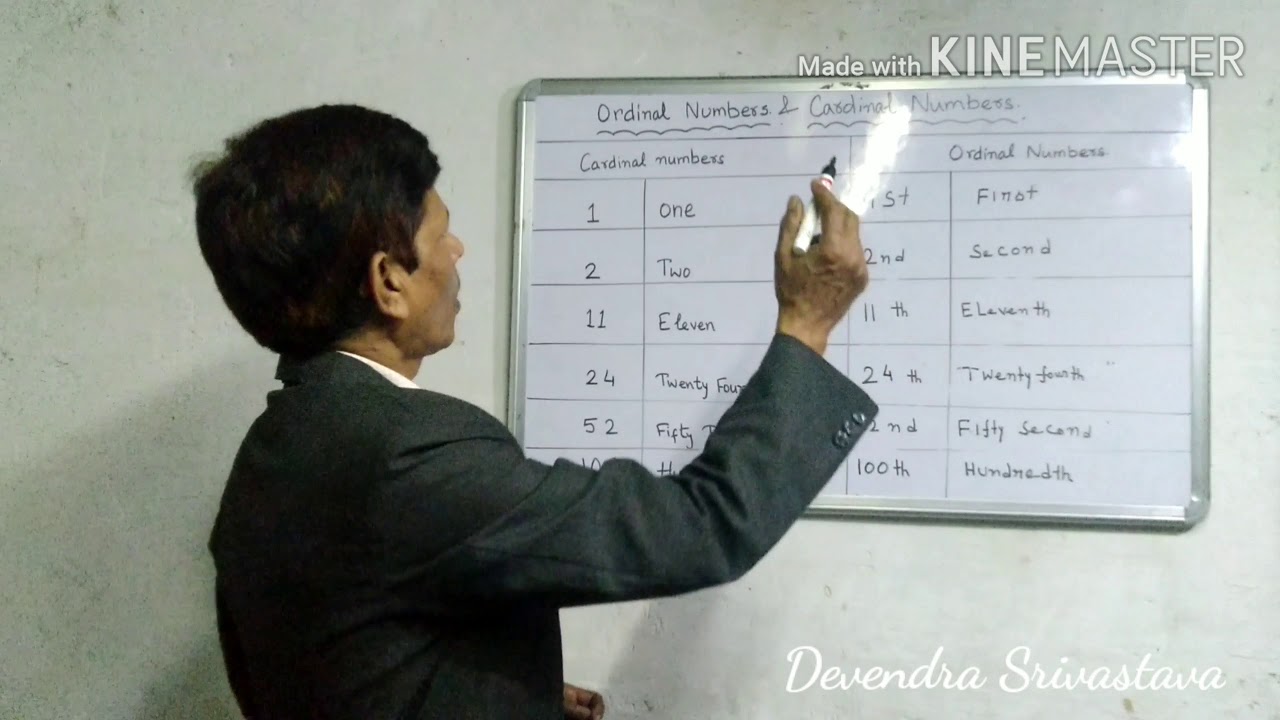 Made with KINEMASTER
Ordinal Numbers & Cardinal Numbers.
Cardinal numbers Ordinal Numbers
1 One 1st First
2 Two 2nd Second
11 Eleven 11 th ELeventh
24 Twenty Four 24 th Twenty fourth
52 Fifty 2nd Fifty Second
100th Hundredth
Devendra Srivastava